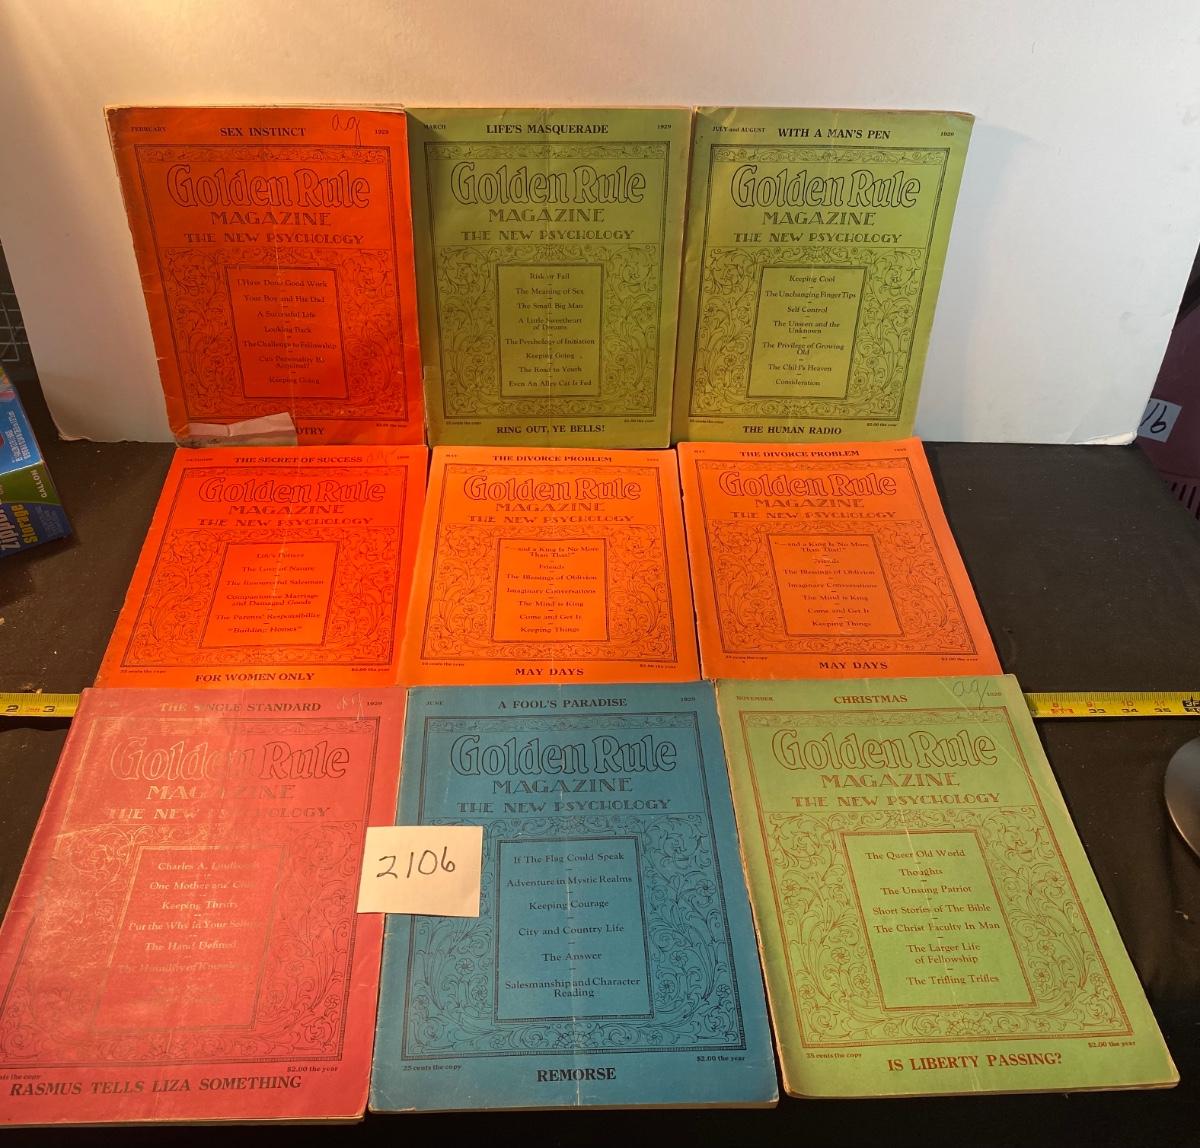 FEBRUARY SEX INSTINCT ag 1929
Golden Rule
MAGAZINE
THE NEW PSYCHOLOGY
I Have Done Good Work
Your Boy and His Dad
A Successful Life
Looking Back
The Challenge to Fellowship
Can Personality Be
Acquired?
Keeping Going
$2.00 the year
MARCH LIFE'S MASQUERADE 1929
Golden Rule
MAGAZINE
THE NEW PSYCHOLOGY
Risk or Fail
The Meaning of Sex
The Small Big Man
A Little Sweetheart
of Dreams
The Psychology of Initiation
Keeping Going
The Road to Youth
Even An Alley Cat Is Fed
25 cents the copy $2.00 the year
RING OUT, YE BELLS!
JULY and AUGUST WITH A MAN'S PEN 1929
Golden Rule
MAGAZINE
THE NEW PSYCHOLOGY
Keeping Cool
The Unchanging Finger Tips
Self Control
The Unseen and the
Unknown
The Privilege of Growing
Old
The Child's Heaven
Consideration
25 cents the copy $2.00 the year
THE HUMAN RADIO
OCTOBER THE SECRET OF SUCCESS ag
Golden Rule
MAGAZINE
THE NEW PSYCHOLOGY
The Love of Nature
The Resourceful Salesman
Companionate Marriage
and Damaged Goods
The Parents' Responsibility
"Building Homes"
25 cents the copy $2.00 the year
FOR WOMEN ONLY
MAY THE DIVORCE PROBLEM 1929
Golden Rule
MAGAZINE
THE NEW PSYCHOLOGY
"—and a King Is No More
Than That!"
Friends
The Blessings of Oblivion
Imaginary Conversations
The Mind is King
Come and Get It
Keeping Things
25 cents the copy $2.00 the year
MAY DAYS
MAY THE DIVORCE PROBLEM 1929
Golden Rule
MAGAZINE
THE NEW PSYCHOLOGY
"—and a King Is No More
Than That!"
Friends
The Blessings of Oblivion
Imaginary Conversations
The Mind is King
Come and Get It
Keeping Things
25 cents the copy $2.00 the year
MAY DAYS
THE SINGLE STANDARD 1929
Golden Rule
MAGAZINE
THE NEW PSYCHOLOGY
Charles A.
One Mother and
Keeping Thrifty
Put the Why in Your
The Hand Defined
cents the copy $2.00 the year
RASMUS TELLS LIZA SOMETHING
2106
JUNE A FOOL'S PARADISE 1929
Golden Rule
MAGAZINE
THE NEW PSYCHOLOGY
If The Flag Could Speak
Adventure in Mystic Realms
Keeping Courage
City and Country Life
The Answer
Salesmanship and Character
Reading
25 cents the copy $2.00 the year
REMORSE
NOVEMBER CHRISTMAS ag 1929
Golden Rule
MAGAZINE
THE NEW PSYCHOLOGY
The Queer Old World
Thoughts
The Unsung Patriot
Short Stories of The Bible
The Christ Faculty In Man
The Larger Life
of Fellowship
The Trifling Trifles
25 cents the copy $2.00 the year
IS LIBERTY PASSING?
GALLON
Storage
2 3
33 34 35